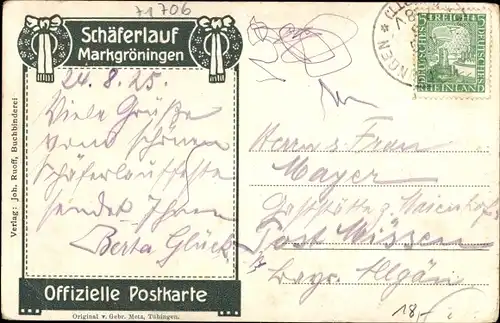 71706
Schäferlauf
Markgröningen
24.8.25.
Viele Grüße
vom schönen
Schäferlauffeste
sendet Ihnen
Berta Glück
Offizielle Postkarte
Verlag: Joh. Ruoff, Buchbinderei
Original v. Gebr. Metz, Tübingen.
DEUTSCHES REICH
5 5
RHEINLAND
Herrn u. Frau
Mayer
Post Missen
bayr. Allgäu
18,-